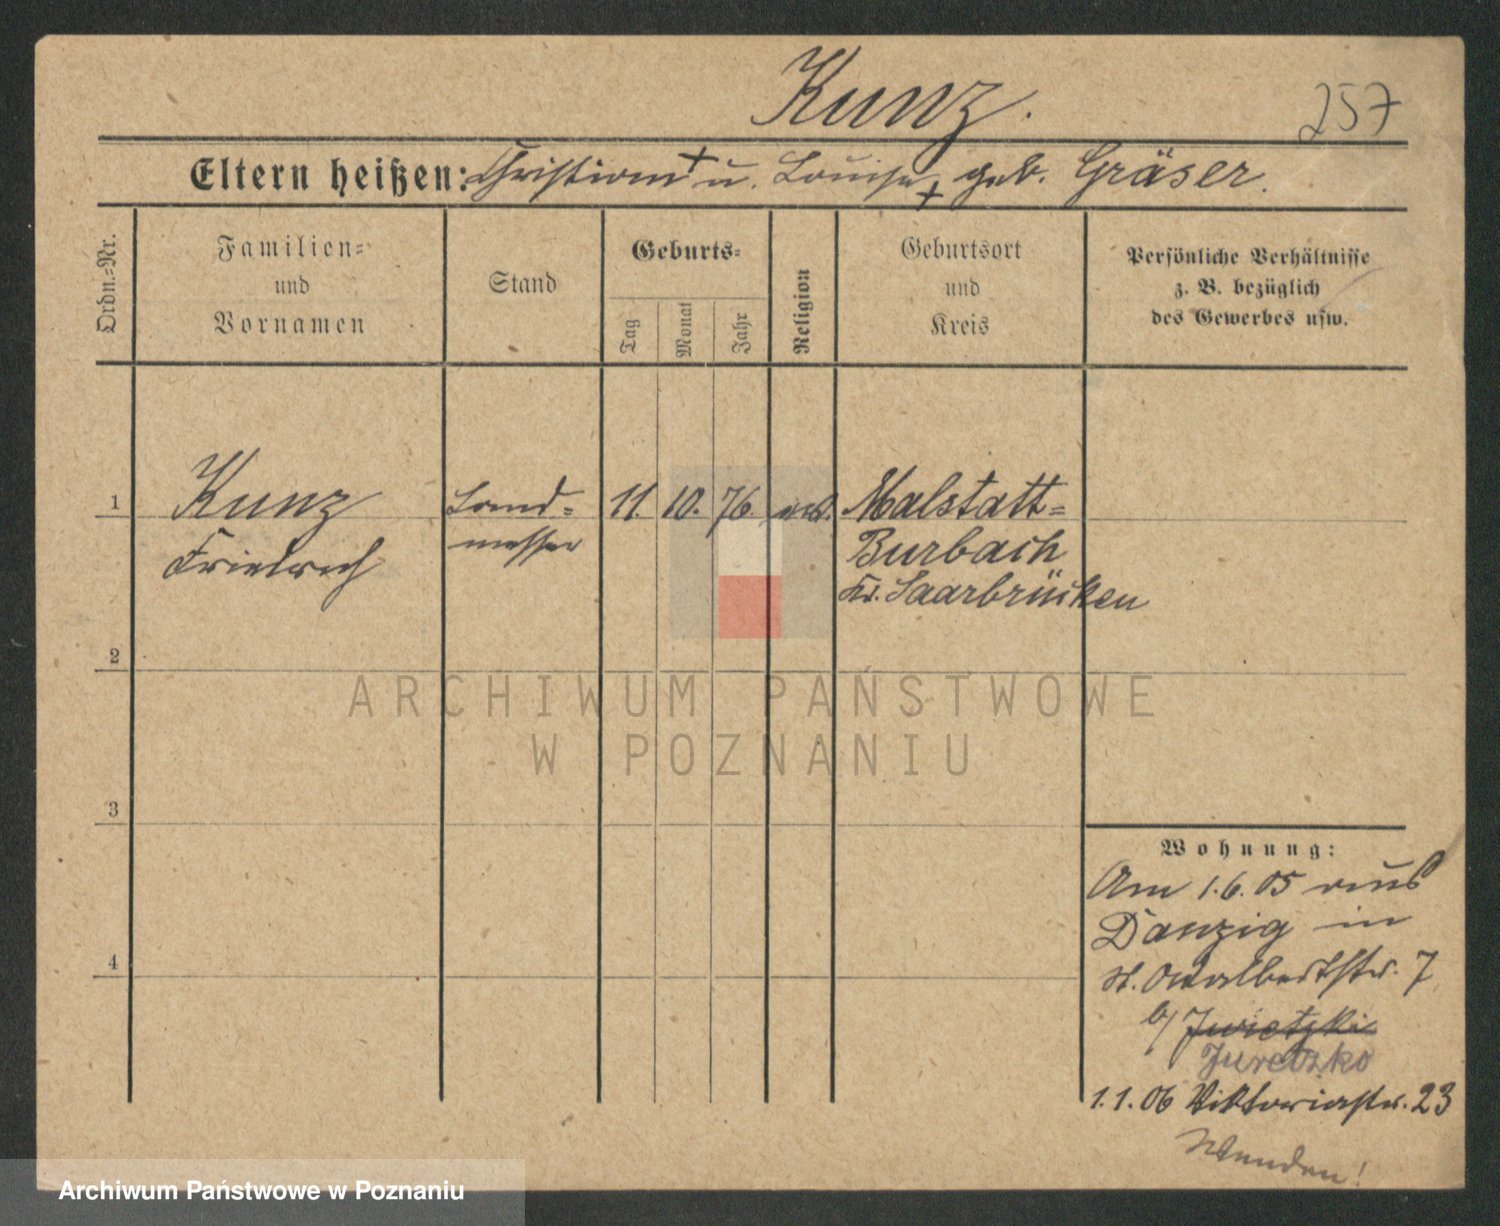 Kunz.
257
Eltern heißen: Christian + u. Louise + geb. Gräser.
Ordn.=Nr.
Familien=
und
Vornamen
Stand
Geburts=
Tag
Monat
Jahr
Religion
Geburtsort
und
Kreis
Persönliche Verhältnisse
z. B. bezüglich
des Gewerbes usw.
1
Kunz
Friedrich
Land=
messer
11. 10. 76.
Malstatt=
Burbach
Kr. Saarbrücken
2
3
4
Wohnung:
Am 1.6.05 aus
Danzig in
St. Adalbertstr. 7
b/ Juretzki
Juretzko
1.1.06 Viktoriastr. 23
Wenden!
ARCHIWUM PAŃSTWOWE
W POZNANIU
Archiwum Państwowe w Poznaniu